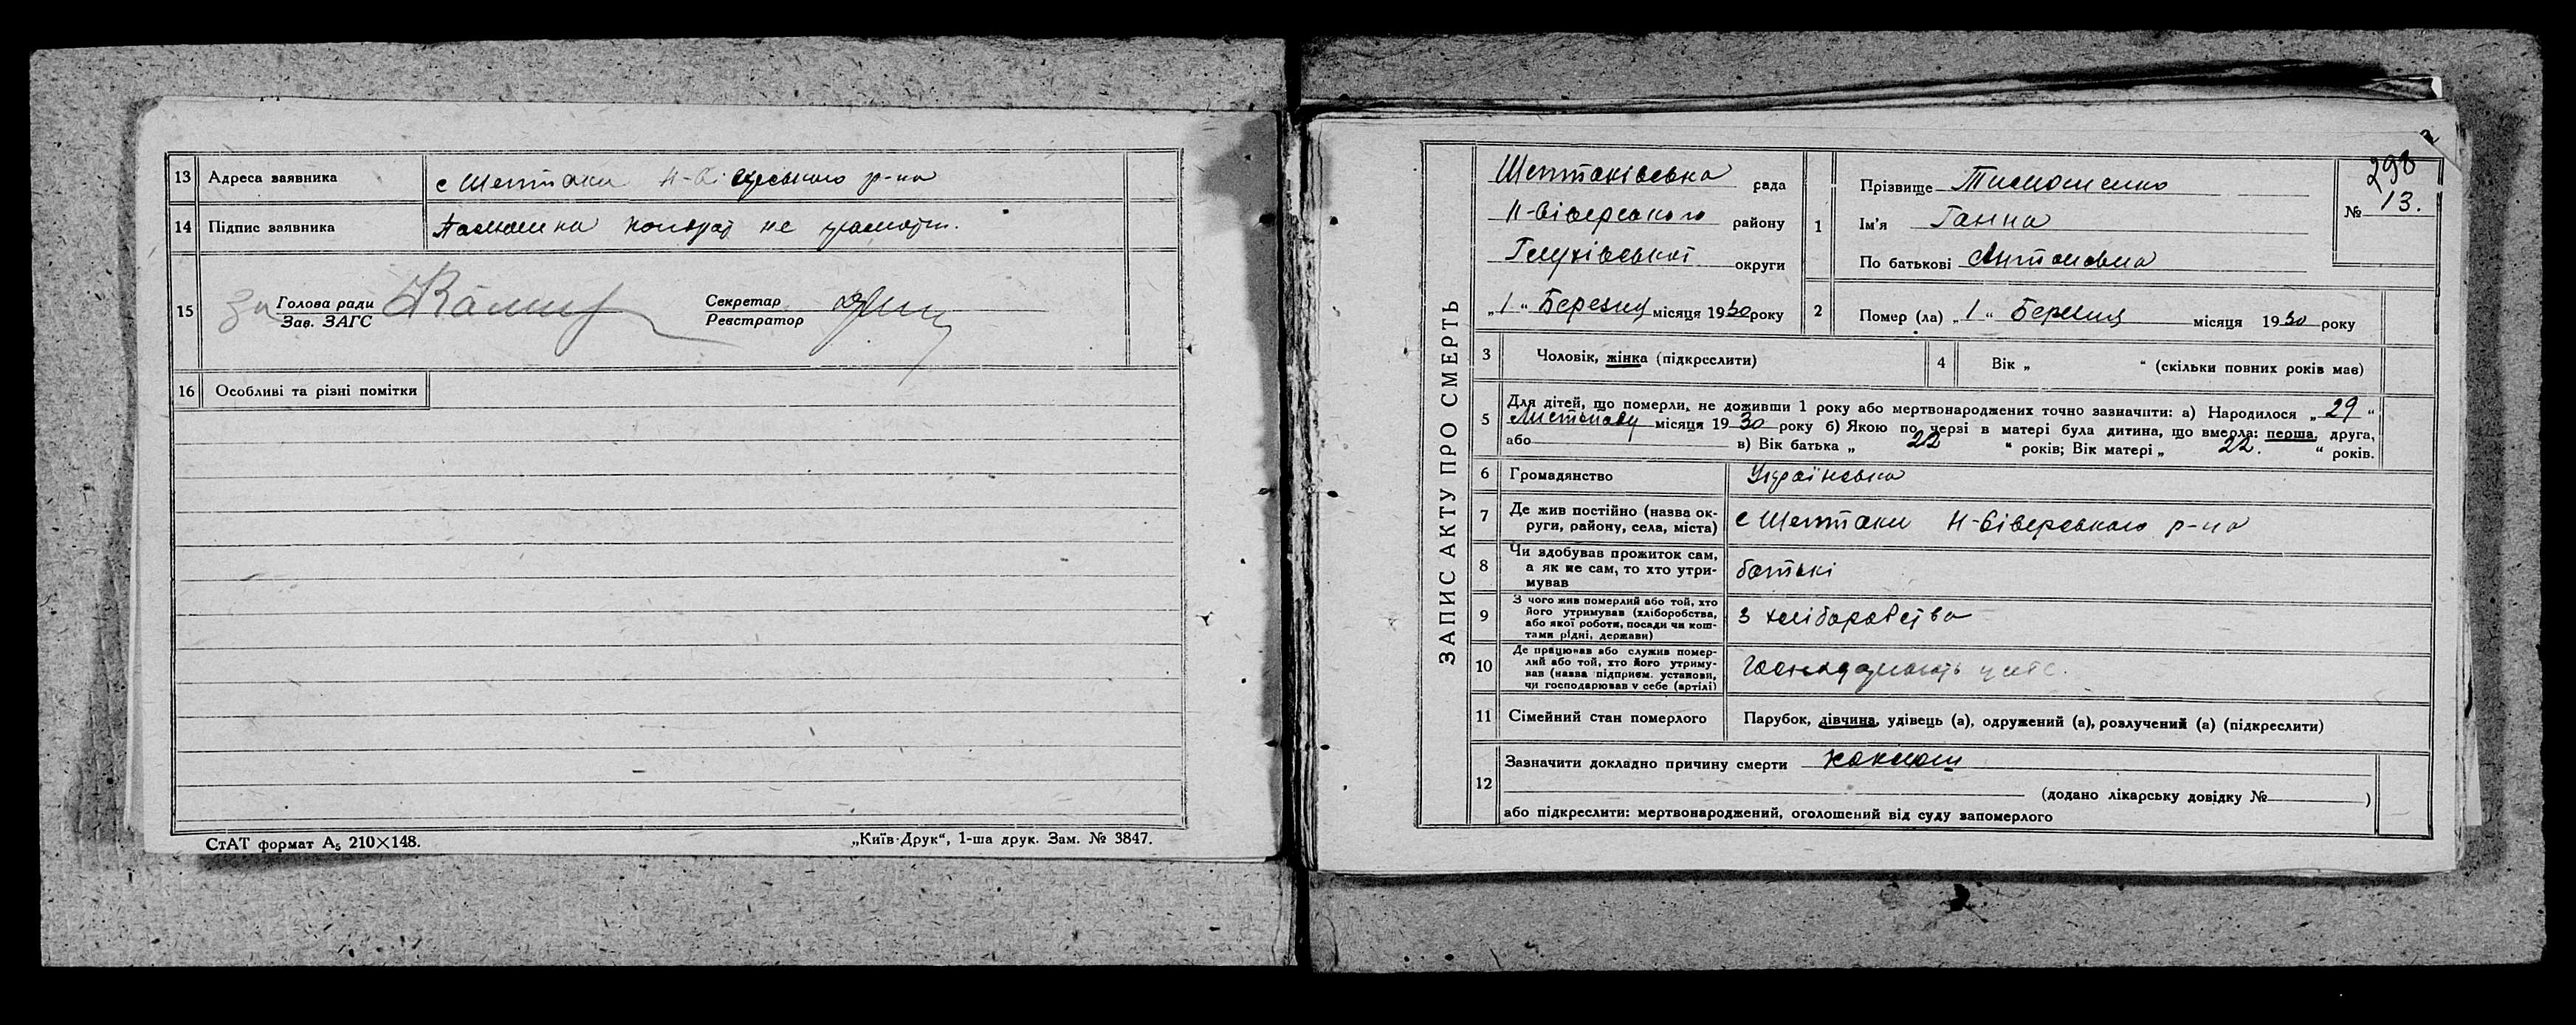 13 Адреса заявника с Шептаки Н-Сіверського р-на
14 Підпис заявника не грамотн.
15 За Голова ради Секретар
Зав. ЗАГС Реєстратор
16 Особливі та різні помітки
СтАТ формат А₅ 210×148. „Київ-Друк“, 1-ша друк. Зам. № 3847.
298
ЗАПИС АКТУ ПРО СМЕРТЬ
Шептаківська рада
Н-Сіверського району
Глухівської округи
„1“ Березня місяця 1930 року
1 Прізвище Тимошенко
Ім'я Ганна
По батькові Антоновна
№ 13.
2 Помер (ла) „1“ Березня місяця 1930 року
3 Чоловік, жінка (підкреслити) 4 Вік „ “ (скільки повних років має)
5 Для дітей, що померли, не доживши 1 року або мертвонароджених точно зазначити: а) Народилося „29“
Листопаду місяця 1930 року б) Якою по черзі в матері була дитина, що вмерла: перша, друга,
або в) Вік батька „ 22 “ років; Вік матері „ 22. “ років.
6 Громадянство Українська
7 Де жив постійно (назва ок-
руги, району, села, міста) с Шептаки Н-Сіверського р-на
8 Чи здобував прожиток сам,
а як не сам, то хто утри-
мував батькі
9 З чого жив померлий або той, хто
його утримував (хліборобства,
або якої роботи, посади чи кош-
тами рідні, держави) З хліборобства
10 Де працював або служив помер-
лий або той, хто його утриму-
вав (назва підприєм. установи,
чи господарював у себе (артілі)
11 Сімейний стан померлого Парубок, дівчина, удівець (а), одружений (а), розлучений (а) (підкреслити)
12 Зазначити докладно причину смерти
(додано лікарську довідку № )
або підкреслити: мертвонароджений, оголошений від суду запомерлого